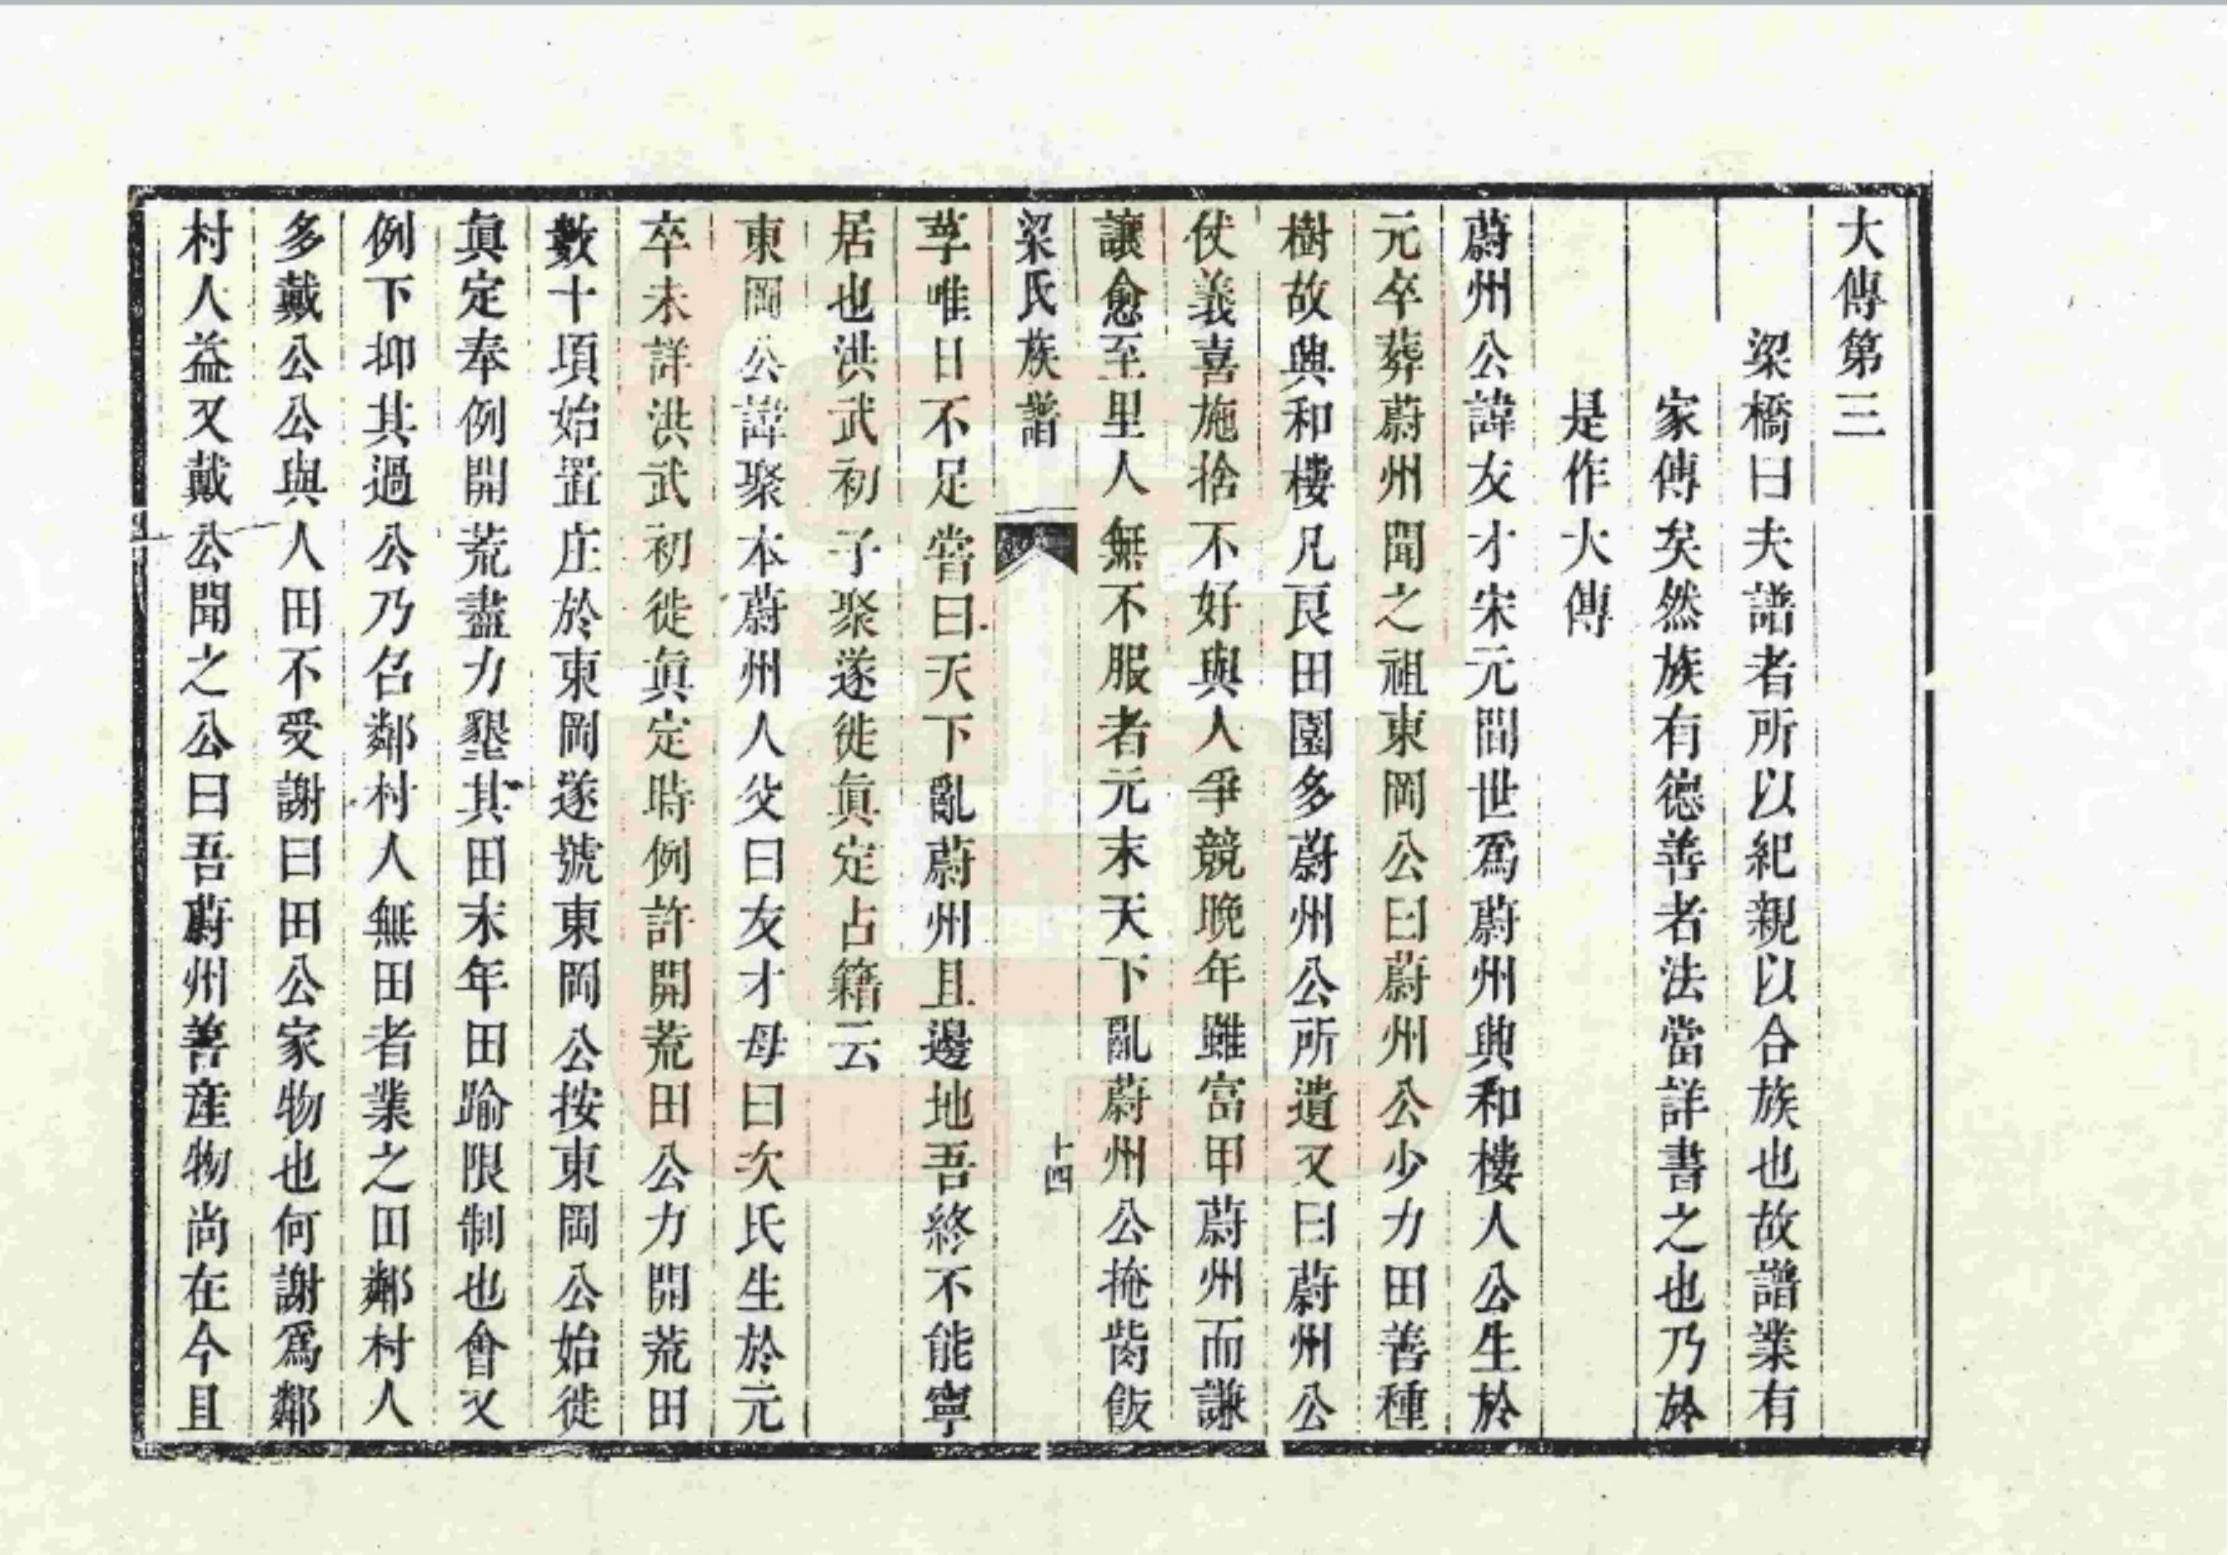 大傳第三
梁橋曰夫譜者所以紀親以合族也故譜業有
家傳矣然族有德善者法當詳書之也乃於
是作大傳
蔚州公諱友才宋元間世爲蔚州興和樓人公生於
元卒葬蔚州聞之祖東岡公曰蔚州公少力田善種
樹故興和樓凡良田園多蔚州公所遺又曰蔚州公
仗義喜施捨不好與人爭競晚年雖富甲蔚州而謙
讓愈至里人無不服者元末天下亂蔚州公掩胔飯
莩唯日不足嘗曰天下亂蔚州且邊地吾終不能寧
居也洪武初子聚遂徙眞定占籍云
東岡公諱聚本蔚州人父曰友才母曰次氏生於元
卒未詳洪武初徙眞定時例許開荒田公力開荒田
數十項始置庄於東岡遂號東岡公按東岡公始徙
眞定奉例開荒盡力墾其田末年田踰限制也會又
例下抑其過公乃召鄰村人無田者業之田鄰村人
多戴公公與人田不受謝曰田公家物也何謝爲鄰
村人益又戴公聞之公曰吾蔚州善產物尚在今且
梁氏族譜
十四